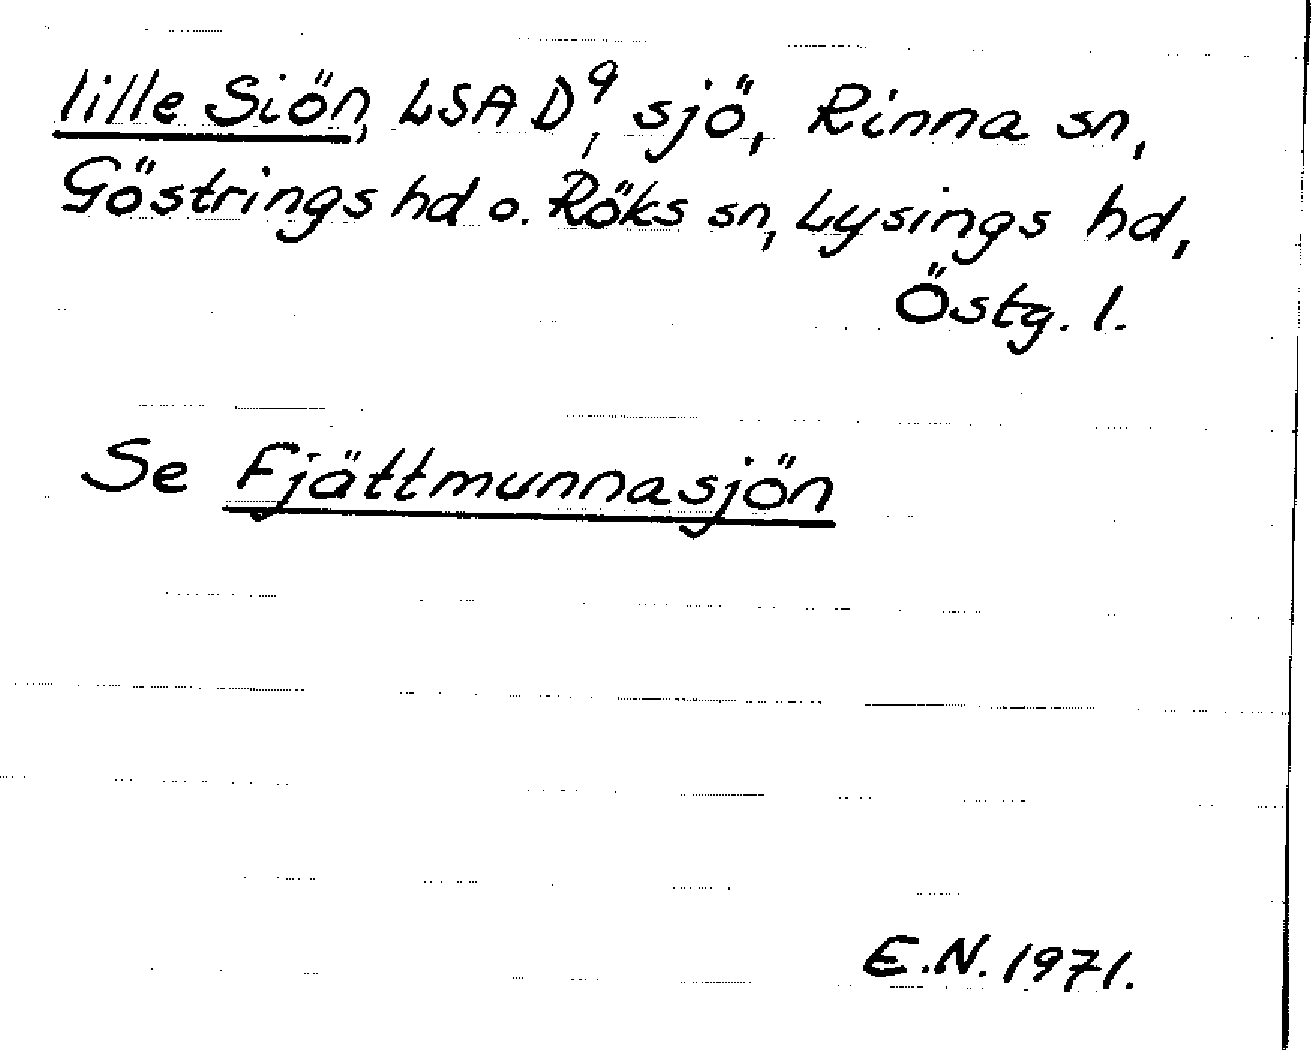 lille Siön, LSA D⁹, sjö, Rinna sn,
Göstrings hd o. Röks sn, Lysings hd,
Östg. l.
Se Fjättmunnasjön
E.N. 1971.